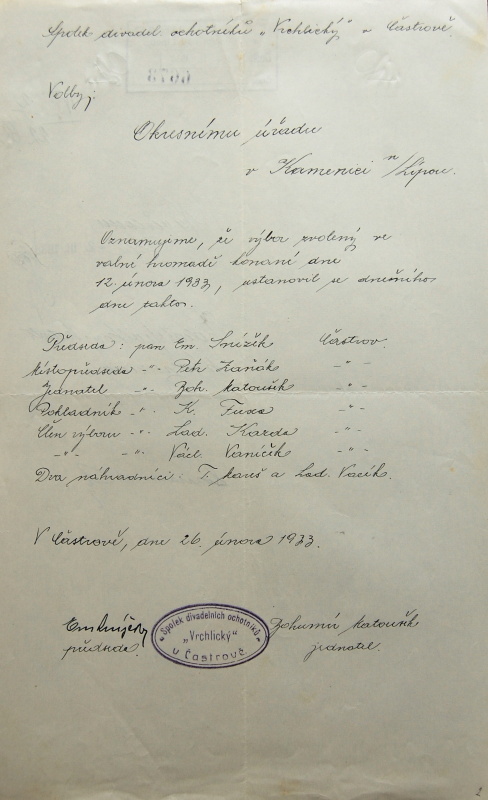 Spolek divadel. ochotníků „Vrchlický" v Částrově.
Volby:
Okresnímu úřadu
v Kamenici n/Lipou.
Oznamujeme, že výbor zvolený ve
valní hromadě konaní dne
12. února 1933, ustanovil se dnešního
dne takto:
Předseda: pan Em. Snížek Částrov.
Místopředseda -"- Petr Zaňák -"-
Jednatel -"- Boh. Matoušek -"-
Pokladník -"- K. Fuxa -"-
Člen výboru -"- Lad. Kazda -"-
-"- -"- Václ. Vaníček -"-
Dva náhradníci: T. Mauš a Lad. Vacík.
V Částrově, dne 26. února 1933.
Em Snížek Bohumil Matoušek
předseda. jednatel.
Spolek divadelních ochotníků
„Vrchlický"
v Častrově
2